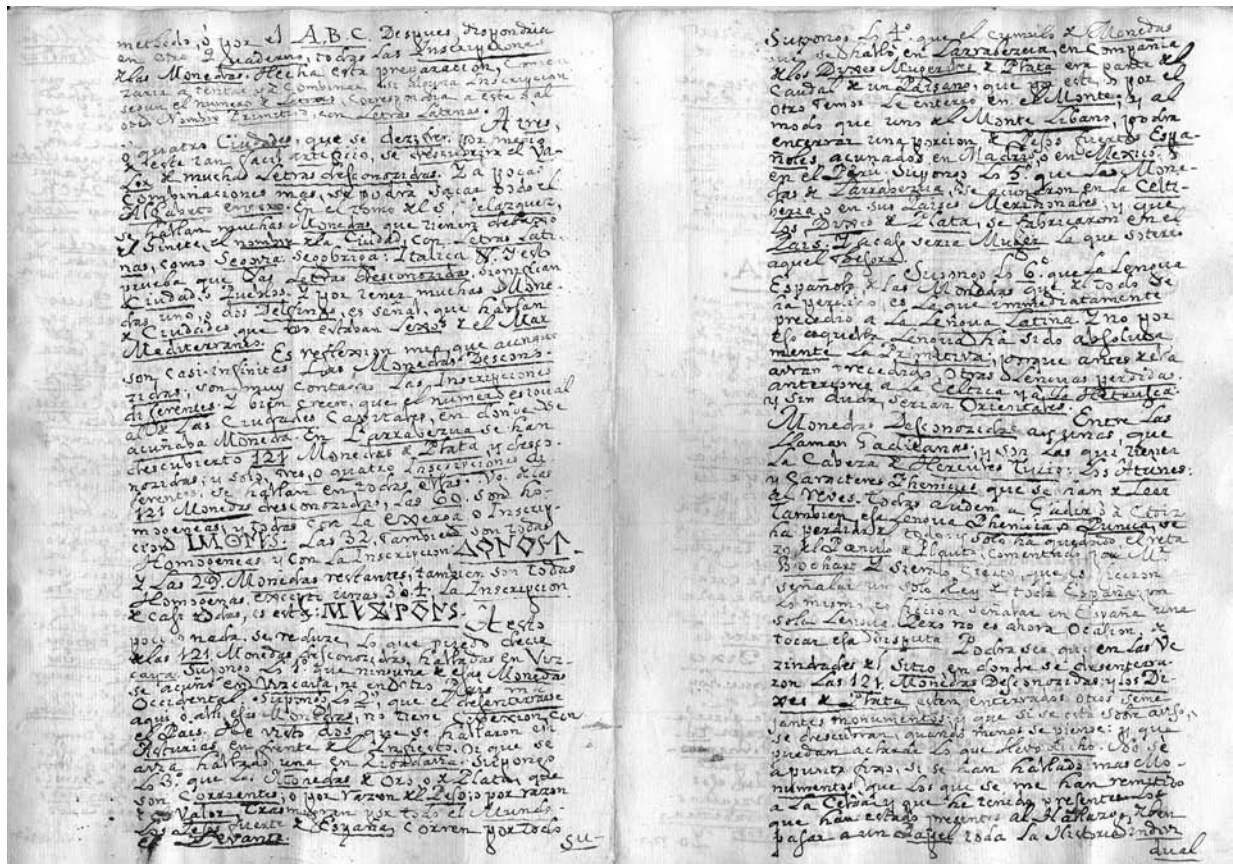 methodo, ò por el A.B.C. Despues, dispondria
en otro Quaderno, todas las Inscripciones
de las Monedas. Hecha esta preparacion,
zaria a tentar, y à Combinar, si alguna Inscripcion
segun el numero de Letras, correspondia a este ò al
otro Nombre Primitivo, con Letras Latinas. A tres,
o quatro Ciudades, que se , por medio
de este tan facil artificio, se descubrirà el Va-
lor de muchas Letras desconozidas. Y a pocas
Combinaciones mas, se podrà sacar todo el
Alfabeto entero. En el tomo del Sr. Velazquez,
se hallan muchas Monedas, que tienen debaxo
el Ginete, el nombre de la Ciudad, con Letras Lati-
nas, como Segovia: Segobriga: Italica &. Y es
prueba que las Letras Desconozidas, significan
Ciudad, ò Pueblo. Y por tener muchas Mone-
das uno, o dos Delfines, es señal, que hablan
de Ciudades que no estaban Lexos de el Mar
Mediterraneo.
Es reflexion mia, que aunque
son casi-infinitas las Monedas Descono-
zidas, son muy contadas las Inscripciones
diferentes. Y bien creer, que el numero es igual
al de las Ciudades Capitales, en donde se
acuñaba Moneda. En Larrabezua se han
descubierto 121 Monedas de Plata, y desco-
nozidas; y solo tres, o quatro Inscripciones di-
ferentes, se hallan en todas ellas. Vg. de las
121 Monedas desconozidas, las 60. son ho-
mogeneas, y todas con la exerga o Inscrip-
cion . Las 32, tambien son todas
Homogeneas, y con la Inscripcion
Y las 29. Monedas restantes, tambien son todas
Homogeneas, excepto unas 3 o 4. La Inscripcion
de casi todas, es esta: . A esto
poco, o nada, se reduze lo que puedo decir
de las 121. Monedas desconozidas, halladas en Viz-
caya. Supongo lo 1º que ninguna de esas Monedas
se acuñò en Vizcaya, ni en otro Pais mas
Occidental. Supongo lo 2º, que el desenterrarse
aqui o alli esas Monedas, no tiene Conexion con
el Pais. He visto dos que se hallaron en
Asturias, en frente de el Infiesto. Oì que se
avia hallado una en . Supongo
lo 3º que las Monedas de Oro, o de Plata, que
son Corrientes, o por razon del Peso, o por razon
de Valor, Trasminan por todo el Mundo.
Los Pesos fuertes de España, corren por todo
el Levante. Su-
Supongo lo 4º. que el cumulo de Monedas
que se hallò en Larrabezua, en Compañia
de los Dixes Mugeriles de Plata era parte del
Caudal de un Paisano, que por este, ò por el
otro Temor le enterrò en el Monte; y al
modo que uno del Monte Libano, podrà
enterrar una porcion de Pesos fuertes Espa-
ñoles, acuñados en Madrid, o en Mexico; ò
en el Perù. Supongo lo 5º. que las Mone-
das de Larrabezua, se acuñaron en la Celti-
beria, o en sus Paises Meridionales, y que
los Dixes de Plata, se fabricaron en el
Pais. Y acaso seria Muger la que soterrò
aquel Tesoro.
Supongo lo 6º. que la Lengua
Española, de las Monedas que de todo se
ha perdido, es la que immediatamente
precediò a la Lengua Latina. Y no por
eso aquella Lengua ha sido absoluta-
mente La Primitiva; porque antes de ella
avian precedido, otras Lenguas perdidas,
anteriores a la Celtica y a la Hetrusca.
Y sin duda, serian Orientales. Entre las
Monedas Desconozidas ay unas, que
llaman Gaditanas; y son las que tienen
la Cabeza de Hercules Tyrio: los Atunes:
y Caracteres Phenicios, que se han de Leer
al Reves. Todas aluden a Gadir, o a Cadiz
Tambien esa Lengua Phenicia, o Punica, se
ha perdido de todo; y solo ha quedado, el reta-
zo del Pœnulo de Plauto, comentado, por Mr.
Bochart. Y siendo cierto, que es ficcion
señalar un solo Rey de toda España; por
lo mismo es ficcion señalar en España una
sola Lengua. Pero no es ahora Ocasion, de
tocar esa Disputa. Podrà ser, que en las Ve-
zindades del Sitio en donde se desenterra-
ron las 121. Monedas Desconozidas; y los Di-
xes de Plata, esten enterrados otros seme-
jantes monumentos; y que si se està sobre aviso,
se descubran, quando menos se piense: y que
puedan aclarar lo que llevo dicho. No se
apunta fixo, si se han hallado mas Mo-
numentos, que los que se me han remitido
a la Celda, y que he tenido presentes. Los
que han estado presentes al Hallazgo, deben
pasar a un Papel toda la Historia indivi-
dual